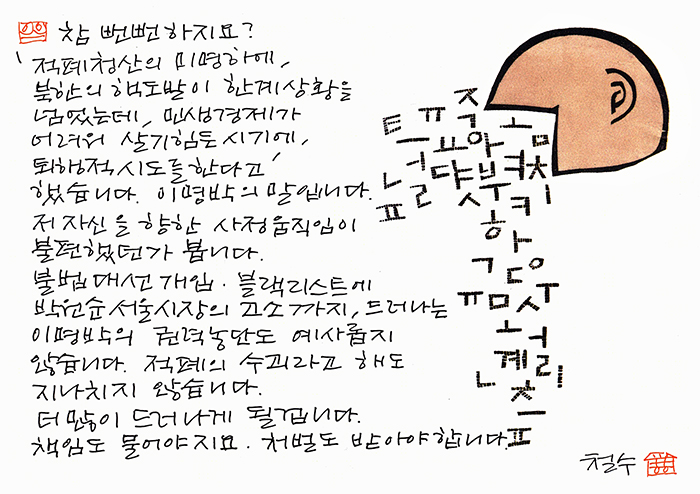 참 뻔뻔하지요?
'적폐청산의 미명하에,
북한의 핵도발이 한계상황을
넘었는데, 민생경제가
어려워 살기힘든 시기에,
퇴행적시도를한다고'
했습니다. 이명박의 말입니다.
저 자신을 향한 사정움직임이
불편했던가 봅니다.
불법대선개입·블랙리스트에
박원순서울시장의 고소까지, 드러나는
이명박의 권력농단도 예사롭지
않습니다. 적폐의 수괴라고 해도
지나치지 않습니다.
더 많이 드러나게 될겁니다.
책임도 물어야지요. 처벌도 받아야합니다.
철수